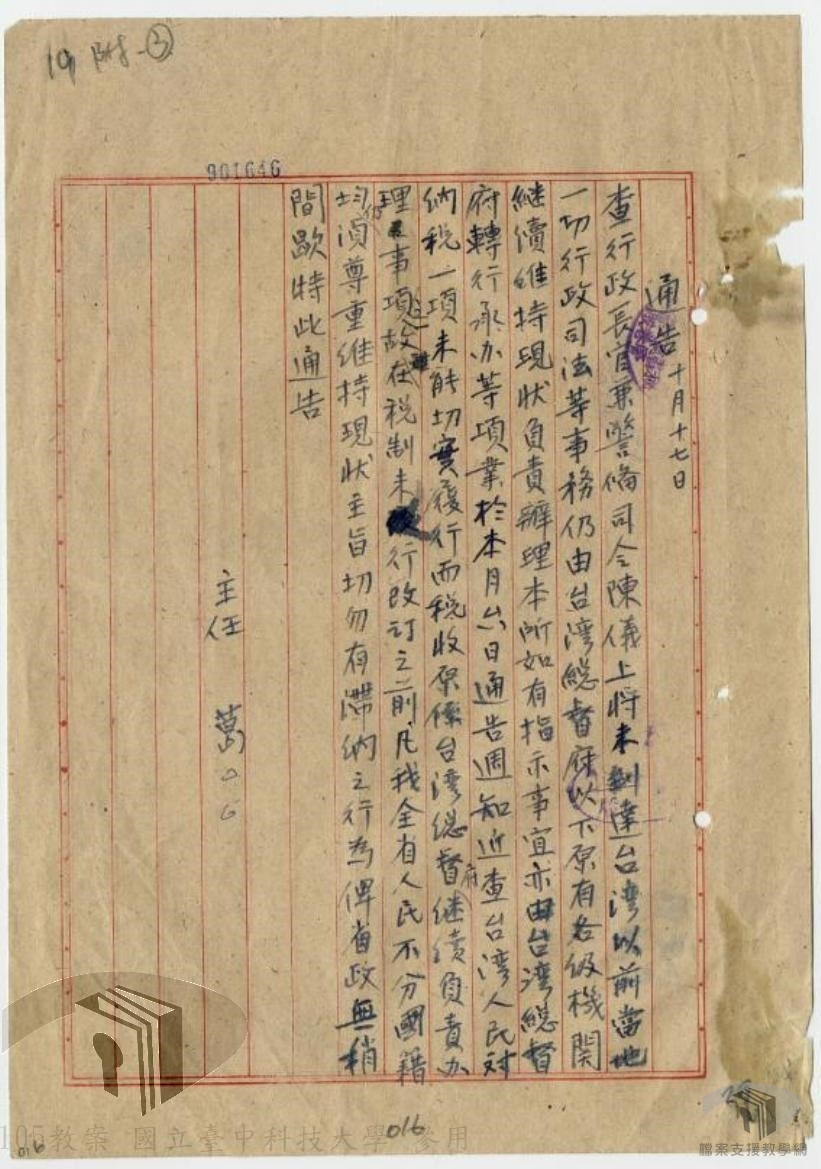 19 附-③
901646
通告 十月十七日
查行政長官兼警备司令陳儀上將未到達台湾以前當地
一切行政司法等事務仍由台湾總督府以下原有各级機関
継續維持現狀負責辦理本所如有指示事宜亦由台湾總督
府轉行承办等項業於本月六日通告週知近查台湾人民对
納税一項未能切實履行而税收原係台湾總督府継續負責办
理事項故在税制未行改訂之前凡我全省人民不分國籍
均須尊重維持現狀主旨切勿有滯納之行為俾省政無稍
間歇特此通告
主任 葛○○
016
105教案 國立臺中科技大學 參用
檔案支援教學網